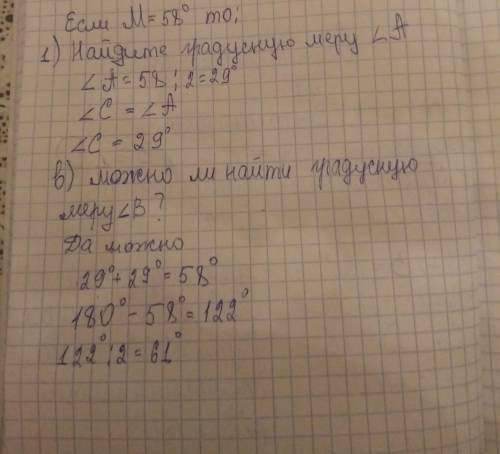 Если M = 58° то;
1) Найдите градусную меру ∠A
∠A = 58 : 2 = 29°
∠C = ∠A
∠C = 29°
b) можно ли найти градусную
меру ∠B?
Да можно
29° + 29° = 58°
180° - 58° = 122°
122° : 2 = 61°